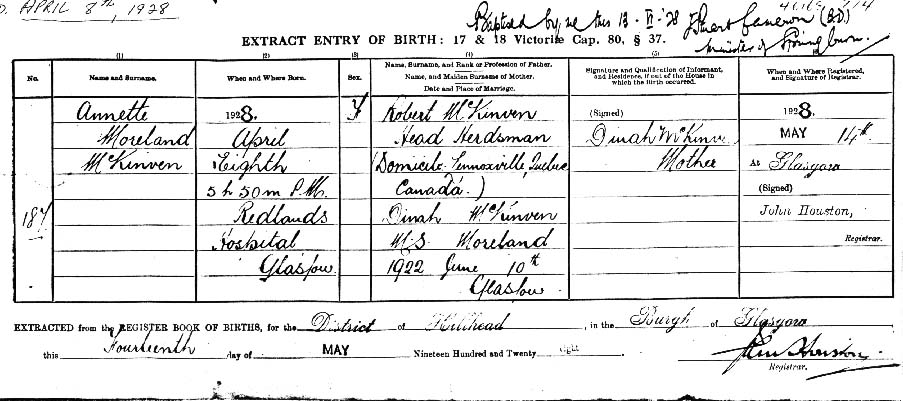 D. APRIL 8TH, 1928
Baptised by me this 13 · V · 28 Stuart Cameron (B.D.)
Minister of Springburn.
EXTRACT ENTRY OF BIRTH: 17 & 18 Victoriæ Cap. 80, § 37.
(1) (2) (3) (4) (5)
No. Name and Surname. When and Where Born. Sex. Name, Surname, and Rank or Profession of Father. Name, and Maiden Surname of Mother. Date and Place of Marriage. Signature and Qualification of Informant, and Residence, if out of the House in which the Birth occurred. When and Where Registered, and Signature of Registrar.
Annette 1928. F Robert McKinven (Signed) 1928.
Moreland April Head Herdsman Dinah McKinve MAY 14th
McKinven Eighth (Domicile Lennoxville, Quebec Mother At Glasgow
5 h 50 m P.M. Canada.) (Signed)
187 Redlands Dinah McKinven John Houston,
Hospital M.S. Moreland Registrar.
Glasgow. 1922 June 10th
Glasgow
EXTRACTED from the REGISTER BOOK OF BIRTHS, for the District of Hillhead, in the Burgh of Glasgow
this Fourteenth day of MAY Nineteen Hundred and Twenty eight
John Houston.
Registrar.